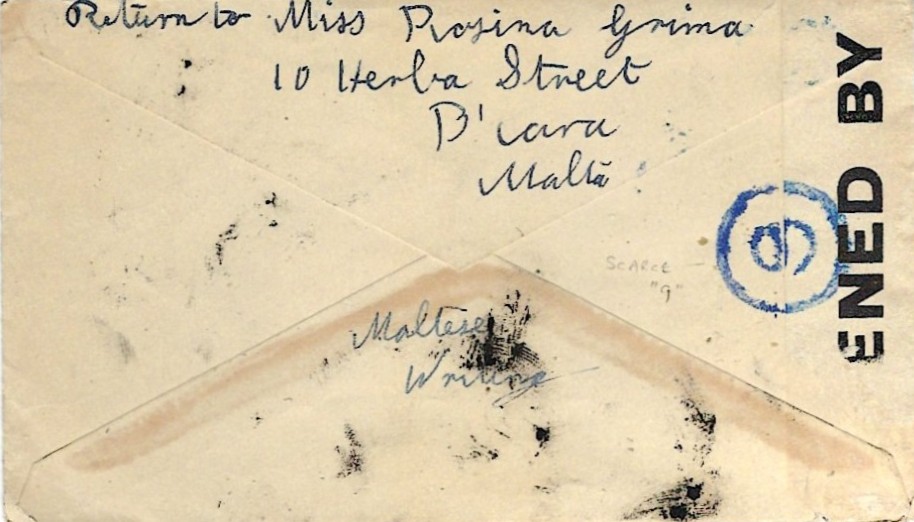 Return to Miss Rosina Grima
10 Herba Street
B'cara
Malta
SCARCE
"9"
9
ENED BY
Maltese
Writing